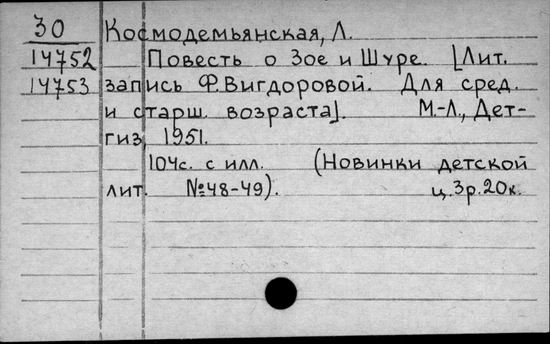 30 Космодемьянская, Л.
14752 Повесть о Зое и Шуре. [Лит.
14753 запись Ф. Вигдоровой. Для сред.
и старш. возраста]. М.-Л., Дет-
гиз, 1951.
104с. с илл. (Новинки детской
лит. №48-49). ц. 3р. 20к.